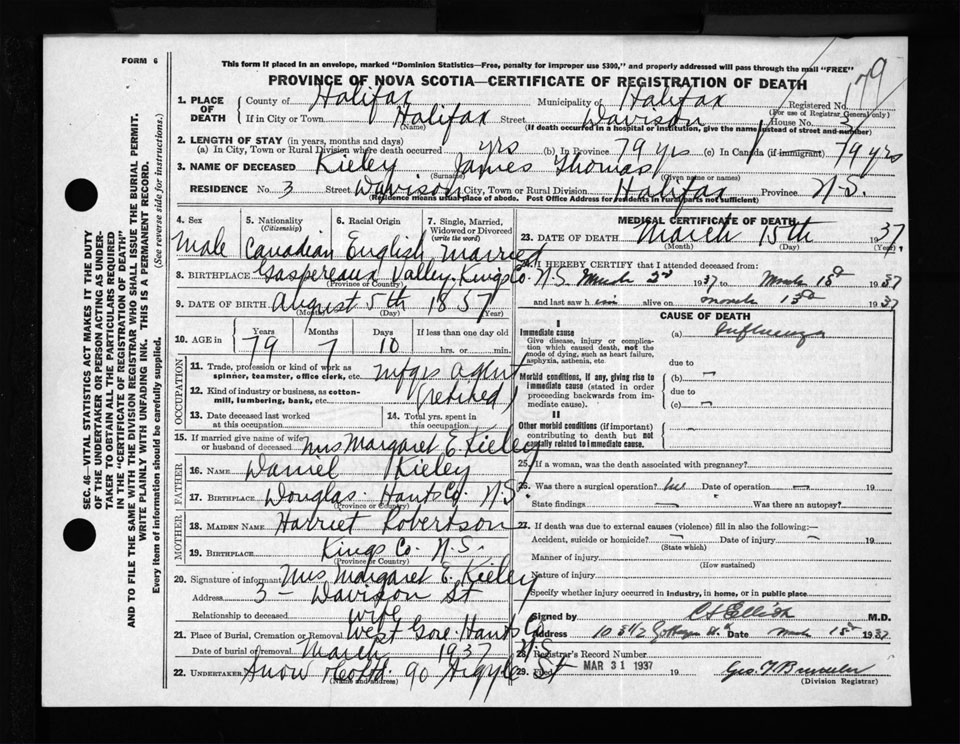 FORM 6
This form if placed in an envelope, marked "Dominion Statistics—Free, penalty for improper use $300," and properly addressed will pass through the mail "FREE"
PROVINCE OF NOVA SCOTIA—CERTIFICATE OF REGISTRATION OF DEATH
179
1. PLACE OF DEATH County of Halifax Municipality of Halifax Registered No.
(For use of Registrar General only)
If in City or Town Halifax Street Davison House No. 3
(Name) (If death occurred in a hospital or institution, give the name instead of street and number)
2. LENGTH OF STAY (in years, months and days)
(a) In City, Town or Rural Division where death occurred yrs (b) In Province 79 yrs (c) In Canada (if immigrant) 79 yrs
3. NAME OF DECEASED Kieley James Thomas
(Surname) (Given name or names)
RESIDENCE No. 3 Street Davison City, Town or Rural Division Halifax Province N.S.
(Residence means usual place of abode. Post Office Address for residents in rural parts not sufficient)
4. Sex Male
5. Nationality (Citizenship) Canadian
6. Racial Origin English
7. Single, Married, Widowed or Divorced (write the word) Married
8. BIRTHPLACE Gaspereaux Valley, Kings Co. N.S.
(Province or Country)
9. DATE OF BIRTH August 5th 1857
(Month) (Day) (Year)
10. AGE in Years 79 Months 7 Days 10 If less than one day old hrs. or min.
OCCUPATION
11. Trade, profession or kind of work as spinner, teamster, office clerk, etc. Mfgrs Agent
12. Kind of industry or business, as cotton-mill, lumbering, bank, etc. (retired)
13. Date deceased last worked at this occupation
14. Total yrs. spent in this occupation
15. If married give name of wife or husband of deceased Mrs Margaret E. Kieley
FATHER
16. NAME Daniel Kieley
17. BIRTHPLACE Douglas. Hants Co. N.S.
(Province or Country)
MOTHER
18. MAIDEN NAME Harriet Robertson
19. BIRTHPLACE Kings Co. N.S.
(Province or Country)
20. Signature of informant Mrs Margaret E. Kieley
Address 3 – Davison St
Relationship to deceased wife
21. Place of Burial, Cremation or Removal West Gore. Hants Co. N.S.
Date of burial or removal March 1937
22. UNDERTAKER Snow & Co Ltd. 90 Argyle St
(Name and address)
MEDICAL CERTIFICATE OF DEATH
23. DATE OF DEATH March 15th 1937
(Month) (Day) (Year)
24. I HEREBY CERTIFY that I attended deceased from:
March 2nd 1937 to March 15th 1937
and last saw him alive on March 15th 1937
CAUSE OF DEATH
I
Immediate cause (a) Influenza
Give disease, injury or complication which caused death, not the mode of dying, such as heart failure, asphyxia, asthenia, etc.
due to
Morbid conditions, if any, giving rise to immediate cause (stated in order proceeding backwards from immediate cause). (b) –
due to
(c) –
II
Other morbid conditions (if important) contributing to death but not causally related to immediate cause.
25. If a woman, was the death associated with pregnancy?
26. Was there a surgical operation? no Date of operation – 19
State findings – Was there an autopsy?
27. If death was due to external causes (violence) fill in also the following:—
Accident, suicide or homicide? – Date of injury – 19
(State which)
Manner of injury
(How sustained)
Nature of injury
Specify whether injury occurred in Industry, in home, or in public place
Signed by C S Elliott M.D.
Address Date March 15th 1937
28. Registrar's Record Number
29. filed MAR 31 1937 19
(Division Registrar)
SEC. 46—VITAL STATISTICS ACT MAKES IT THE DUTY OF THE UNDERTAKER OR PERSON ACTING AS UNDERTAKER TO OBTAIN ALL THE PARTICULARS REQUIRED IN THE "CERTIFICATE OF REGISTRATION OF DEATH" AND TO FILE THE SAME WITH THE DIVISION REGISTRAR WHO SHALL ISSUE THE BURIAL PERMIT.
WRITE PLAINLY WITH UNFADING INK. THIS IS A PERMANENT RECORD.
Every item of information should be carefully supplied. (See reverse side for instructions.)